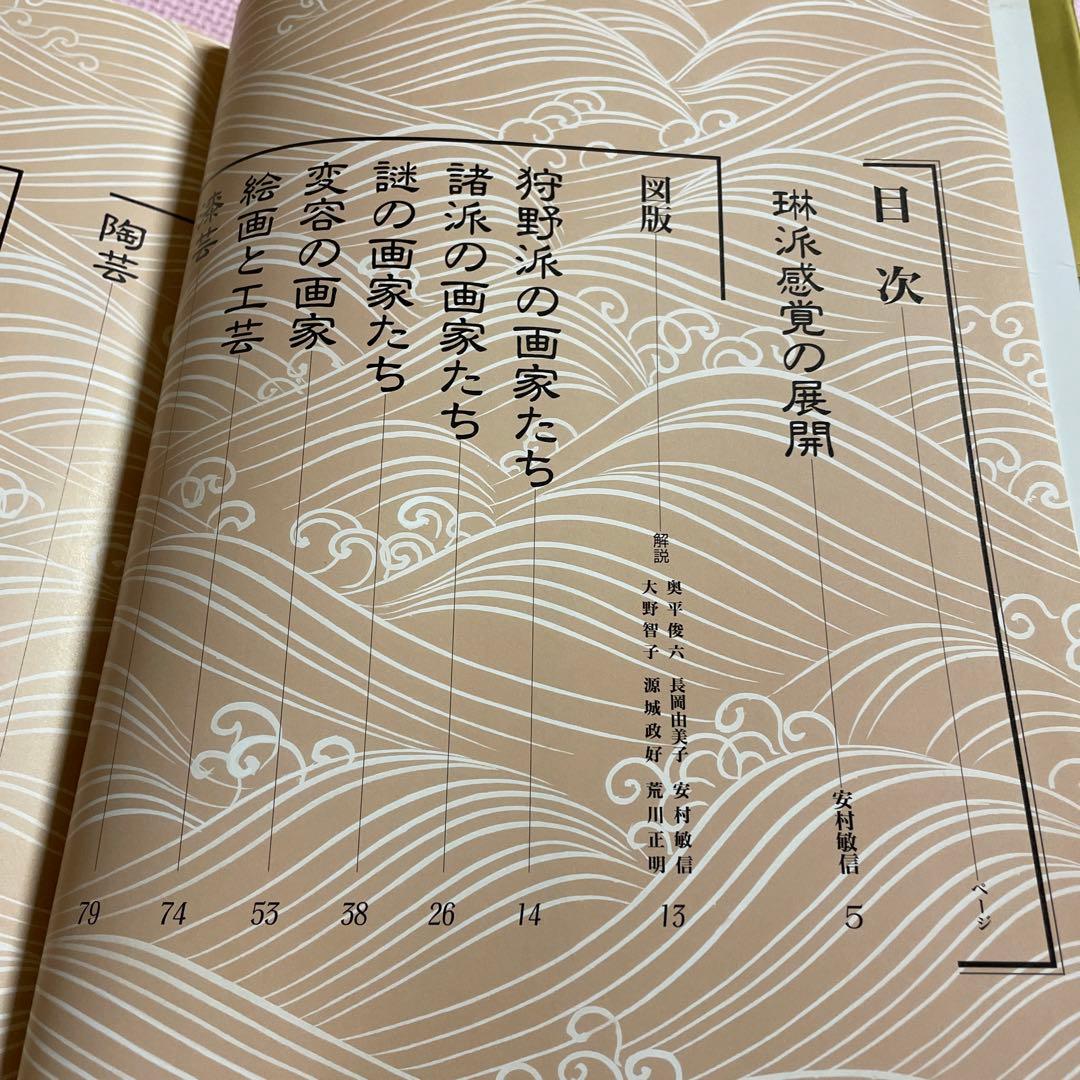 目次
ページ
琳派感覚の展開 安村敏信 5
図版 解説 奥平俊六 長岡由美子 安村敏信
大野智子 源城政好 荒川正明 13
狩野派の画家たち 14
諸派の画家たち 26
謎の画家たち 38
変容の画家 53
絵画と工芸 74
漆芸 79
陶芸